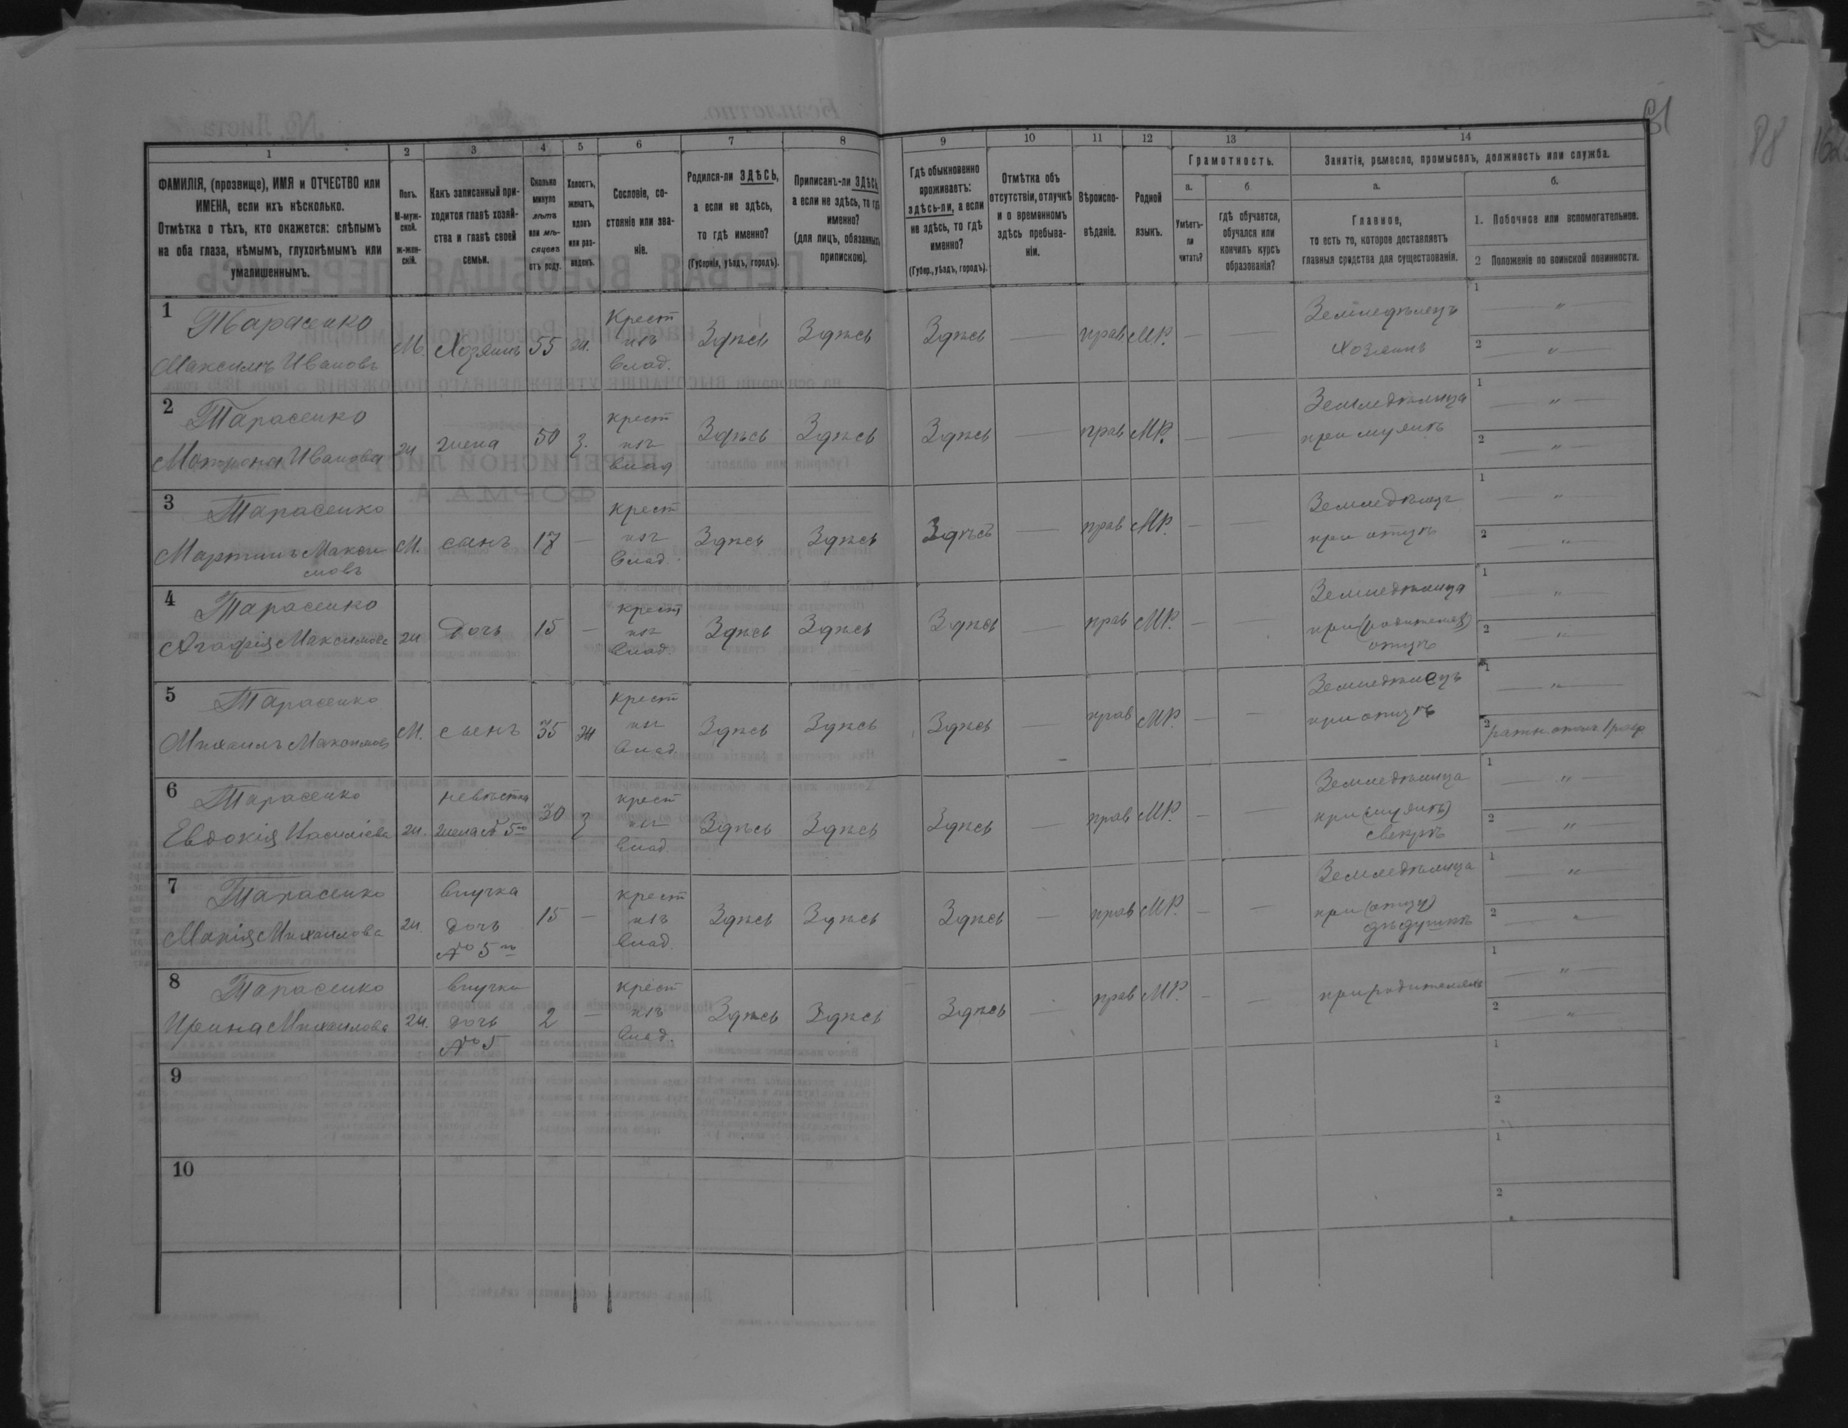 1 2 3 4 5 6 7 8 9 10 11 12 13 14
ФАМИЛІЯ, (прозвище), ИМЯ и ОТЧЕСТВО или
ИМЕНА, если ихъ нѣсколько.
Отмѣтка о тѣхъ, кто окажется: слѣпымъ
на оба глаза, нѣмымъ, глухонѣмымъ или
умалишеннымъ.
Полъ.
М-муж-
ской.
Ж-жен-
скій.
Какъ записанный при-
ходится главѣ хозяй-
ства и главѣ своей
семьи.
Сколько
минуло
лѣтъ
или мѣ-
сяцевъ
отъ роду.
Холостъ,
женатъ,
вдовъ
или раз-
веденъ.
Сословіе, со-
стояніе или зва-
ніе.
Родился-ли ЗДѢСЬ,
а если не здѣсь,
то гдѣ именно?
(Губернія, уѣздъ, городъ).
Приписанъ-ли ЗДѢСЬ,
а если не здѣсь, то гдѣ
именно?
(для лицъ, обязанныхъ
припискою).
Гдѣ обыкновенно
проживаетъ:
здѣсь-ли, а если
не здѣсь, то гдѣ
именно?
(Губер., уѣздъ, городъ).
Отмѣтка объ
отсутствіи, отлучкѣ
и о временномъ
здѣсь пребыва-
ніи.
Вѣроиспо-
вѣданіе.
Родной
языкъ.
Грамотность.
а.
Умѣетъ-
ли
читать?
б.
гдѣ обучается,
обучался или
кончилъ курсъ
образованія?
Занятія, ремесло, промыселъ, должность или служба.
а.
Главное,
то есть то, которое доставляетъ
главныя средства для существованія.
б.
1. Побочное или вспомогательное.
2 Положеніе по воинской повинности.
1 Тарасенко
Максимъ Ивановъ
М. Хозяинъ 55 ж.
Крест
изъ
влад.
Здѣсь Здѣсь Здѣсь — прав МР. — —
Земледѣлецъ
хозяинъ
1 — " —
2 — " —
2 Тарасенко
Мотрона Иванова
ж жена 50 з.
крест
изъ
влад
Здѣсь Здѣсь Здѣсь — прав МР. — —
Земледѣлица
при мужѣ
1 — " —
2 — " —
3 Тарасенко
Мартинъ Макси
мовъ
М. сынъ 17 —
крест
изъ
влад.
Здѣсь Здѣсь Здѣсь — прав МР. — —
Земледѣлецъ
при отцѣ
1 — " —
2 — " —
4 Тарасенко
Агафія Максимова
ж Дочь 15 —
крест
изъ
влад.
Здѣсь Здѣсь Здѣсь — прав МР. — —
Земледѣлица
при (родителяхъ)
отцѣ
1 — " —
2 — " —
5 Тарасенко
Михаилъ Максимовъ
М. сынъ 35 ж
крест
изъ
влад.
Здѣсь Здѣсь Здѣсь — прав МР. — —
Земледѣлецъ
при отцѣ
1 — " —
2 ратн. ополч. 1 разр
6 Тарасенко
Евдокія
ж. невѣстка
жена № 5го
30 з
крест
изъ
влад.
Здѣсь Здѣсь Здѣсь — прав МР. — —
Земледѣлица
при (мужѣ)
свекрѣ
1 — " —
2 — " —
7 Тарасенко
Марія Михаилова
ж. внучка
дочь
№ 5го
15 —
крест
изъ
влад.
Здѣсь Здѣсь Здѣсь — прав МР. — —
Земледѣлица
при (отцу)
дѣдушкѣ
1 — " —
2 — " —
8 Тарасенко
Ирина Михаилова
ж. внучка
дочь
№ 5
2 —
крест
изъ
влад.
Здѣсь Здѣсь Здѣсь — прав МР. — —
при родителяхъ
1 — " —
2 — " —
9
1
2
10
1
2
88